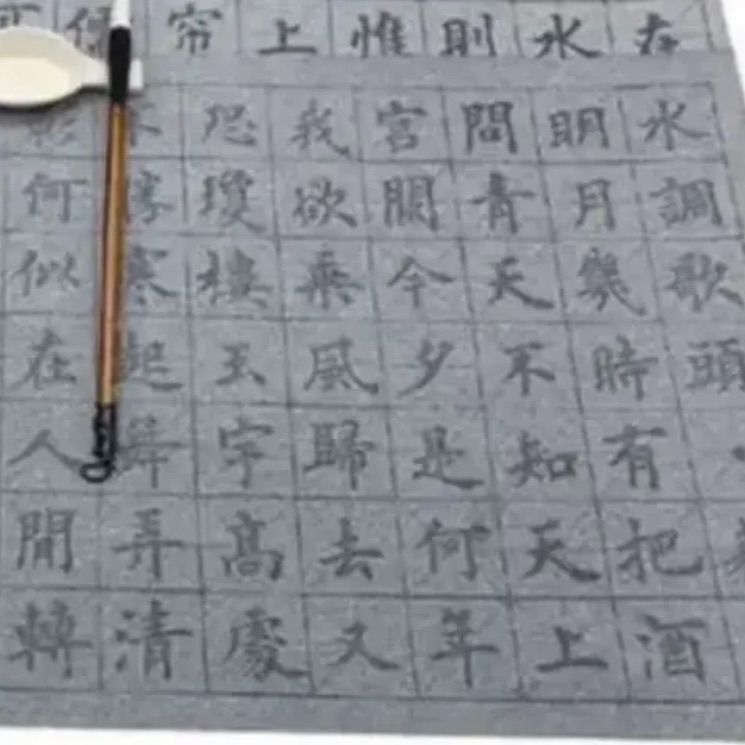 在
水
則
惟
上
帘
何
水調歌頭
明月幾時有把酒
問青天不知天上
宮闕今夕是何年
我欲乘風歸去又
恐瓊樓玉宇高處
不勝寒起舞弄清
影何似在人間轉